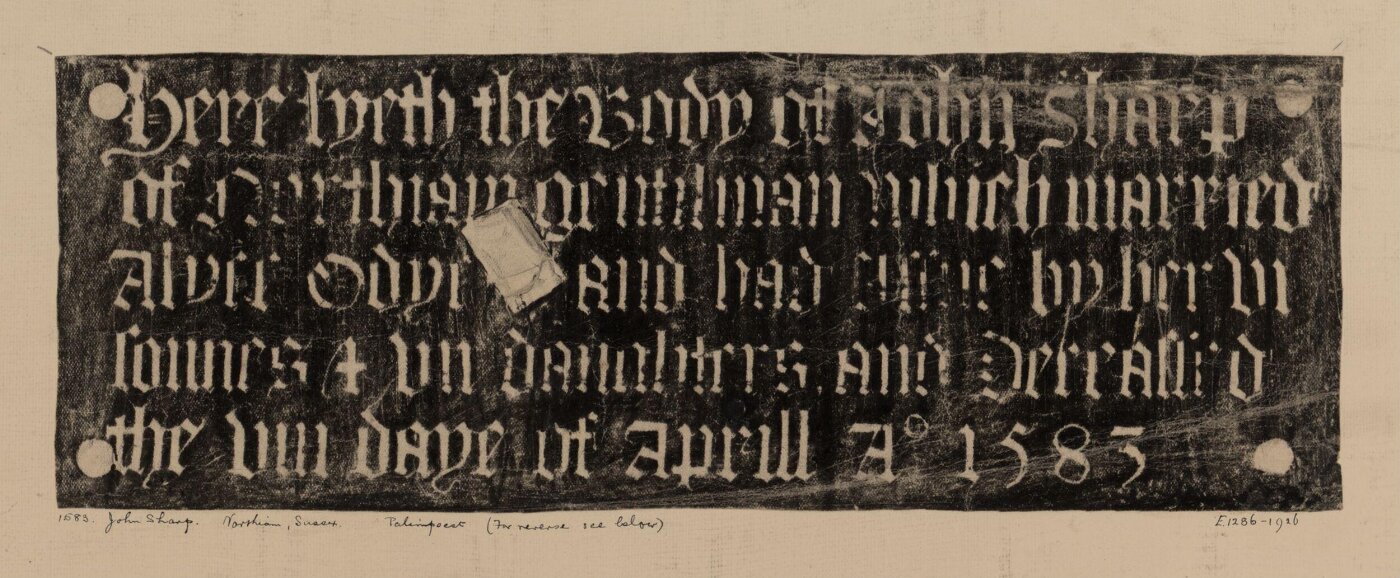 Here lyeth the Body of John Sharp
of Northiam gentilman which married
Alyce Odyr and had issue by her iii
sonnes & vii daughters and Deceassed
the viii daye of Aprill A° 1583
1583. John Sharp. Northiam, Sussex. Palimpsest (For reverse see below) E.1286-1926